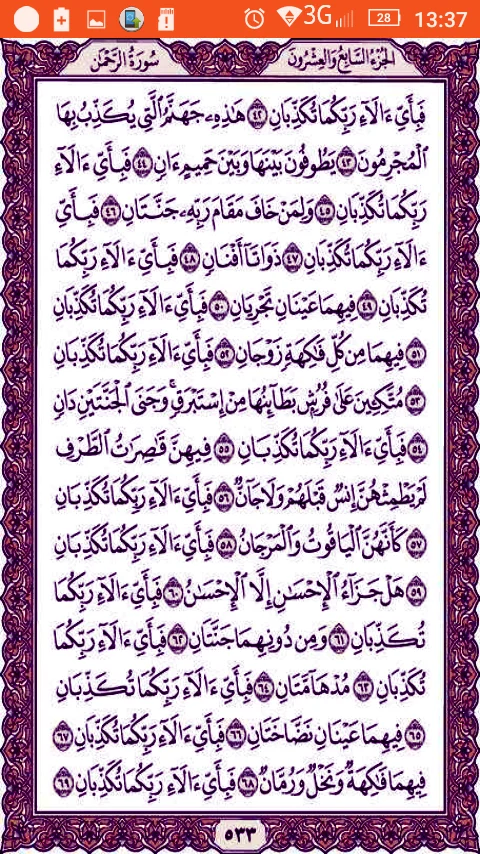 3G 28 13:37
الجزء السابع والعشرون سورة الرحمن
فَبِأَيِّ ءَالَآءِ رَبِّكُمَا تُكَذِّبَانِ ٤٢ هَٰذِهِۦ جَهَنَّمُ ٱلَّتِي يُكَذِّبُ بِهَا
ٱلْمُجْرِمُونَ ٤٣ يَطُوفُونَ بَيْنَهَا وَبَيْنَ حَمِيمٍ ءَانٍ ٤٤ فَبِأَيِّ ءَالَآءِ
رَبِّكُمَا تُكَذِّبَانِ ٤٥ وَلِمَنْ خَافَ مَقَامَ رَبِّهِۦ جَنَّتَانِ ٤٦ فَبِأَيِّ
ءَالَآءِ رَبِّكُمَا تُكَذِّبَانِ ٤٧ ذَوَاتَآ أَفْنَانٍ ٤٨ فَبِأَيِّ ءَالَآءِ رَبِّكُمَا
تُكَذِّبَانِ ٤٩ فِيهِمَا عَيْنَانِ تَجْرِيَانِ ٥٠ فَبِأَيِّ ءَالَآءِ رَبِّكُمَا تُكَذِّبَانِ
٥١ فِيهِمَا مِن كُلِّ فَٰكِهَةٍ زَوْجَانِ ٥٢ فَبِأَيِّ ءَالَآءِ رَبِّكُمَا تُكَذِّبَانِ
٥٣ مُتَّكِـِٔينَ عَلَىٰ فُرُشٍۭ بَطَآئِنُهَا مِنْ إِسْتَبْرَقٍۚ وَجَنَى ٱلْجَنَّتَيْنِ دَانٍ
٥٤ فَبِأَيِّ ءَالَآءِ رَبِّكُمَا تُكَذِّبَانِ ٥٥ فِيهِنَّ قَٰصِرَٰتُ ٱلطَّرْفِ
لَمْ يَطْمِثْهُنَّ إِنسٌ قَبْلَهُمْ وَلَا جَآنٌّ ٥٦ فَبِأَيِّ ءَالَآءِ رَبِّكُمَا تُكَذِّبَانِ
٥٧ كَأَنَّهُنَّ ٱلْيَاقُوتُ وَٱلْمَرْجَانُ ٥٨ فَبِأَيِّ ءَالَآءِ رَبِّكُمَا تُكَذِّبَانِ
٥٩ هَلْ جَزَآءُ ٱلْإِحْسَٰنِ إِلَّا ٱلْإِحْسَٰنُ ٦٠ فَبِأَيِّ ءَالَآءِ رَبِّكُمَا
تُكَذِّبَانِ ٦١ وَمِن دُونِهِمَا جَنَّتَانِ ٦٢ فَبِأَيِّ ءَالَآءِ رَبِّكُمَا
تُكَذِّبَانِ ٦٣ مُدْهَآمَّتَانِ ٦٤ فَبِأَيِّ ءَالَآءِ رَبِّكُمَا تُكَذِّبَانِ
٦٥ فِيهِمَا عَيْنَانِ نَضَّاخَتَانِ ٦٦ فَبِأَيِّ ءَالَآءِ رَبِّكُمَا تُكَذِّبَانِ ٦٧
فِيهِمَا فَٰكِهَةٌ وَنَخْلٌ وَرُمَّانٌ ٦٨ فَبِأَيِّ ءَالَآءِ رَبِّكُمَا تُكَذِّبَانِ ٦٩
٥٣٣